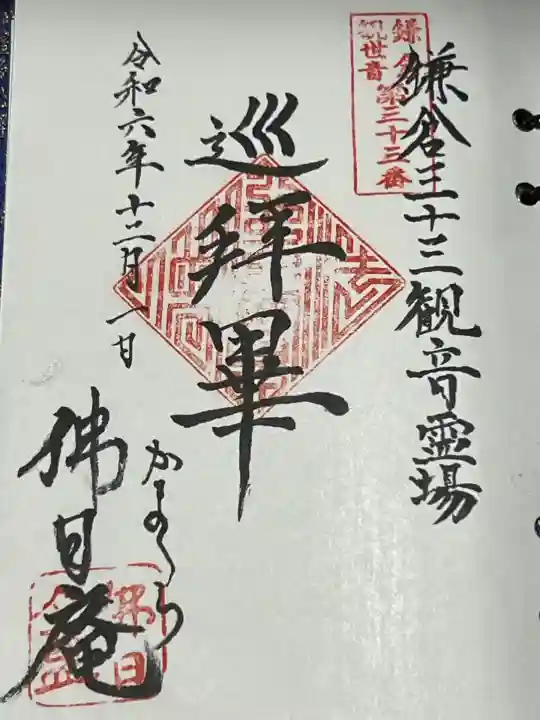 鎌倉三十三観音霊場
鎌倉
観世音第三十三番
巡拜畢
令和六年十二月一日
かまくら
佛日庵